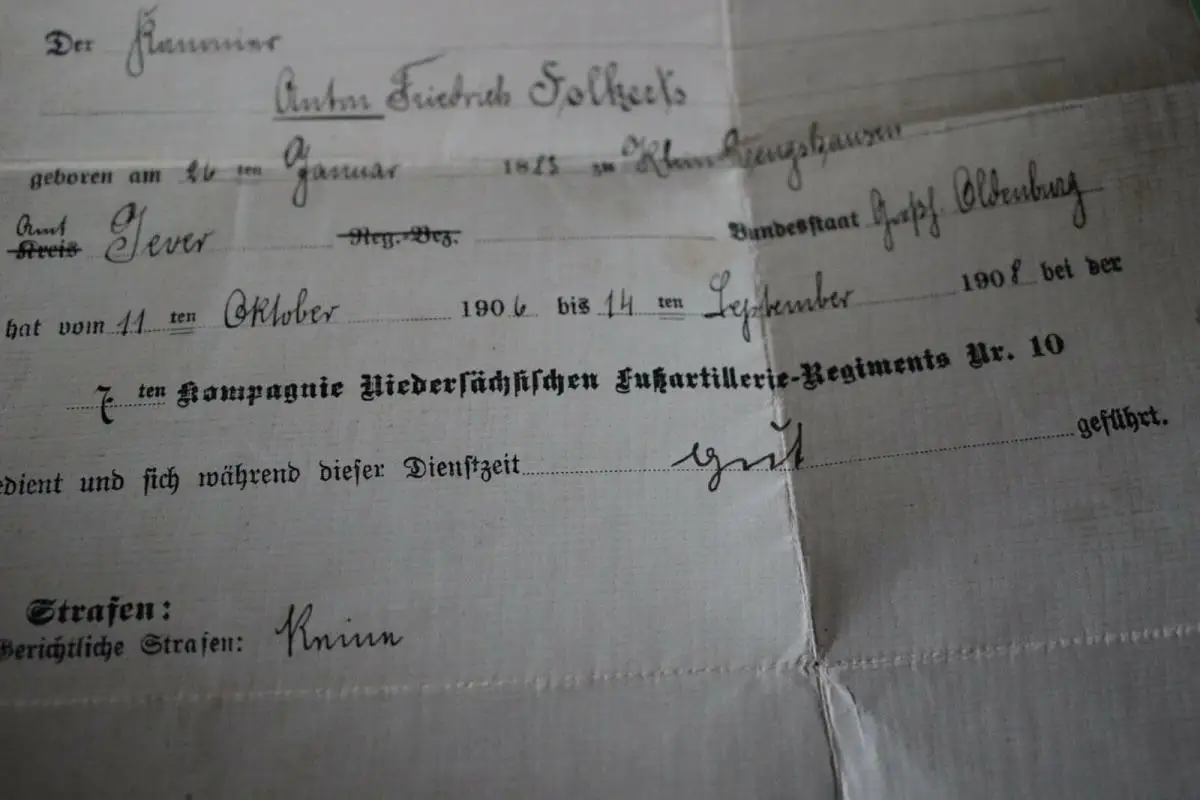 Der Kanonier
Anton Friedrich Folkerts
geboren am 26 ten Januar 18 zu Klein
Amt
Kreis Jever Reg.-Bez. Bundesstaat Großh. Oldenburg
hat vom 11 ten Oktober 1906 bis 14 ten September 1908 bei der
7. ten Kompagnie Niedersächsischen Fußartillerie-Regiments Nr. 10
edient und sich während dieser Dienstzeit gut geführt.
Strafen:
Gerichtliche Strafen: Keine